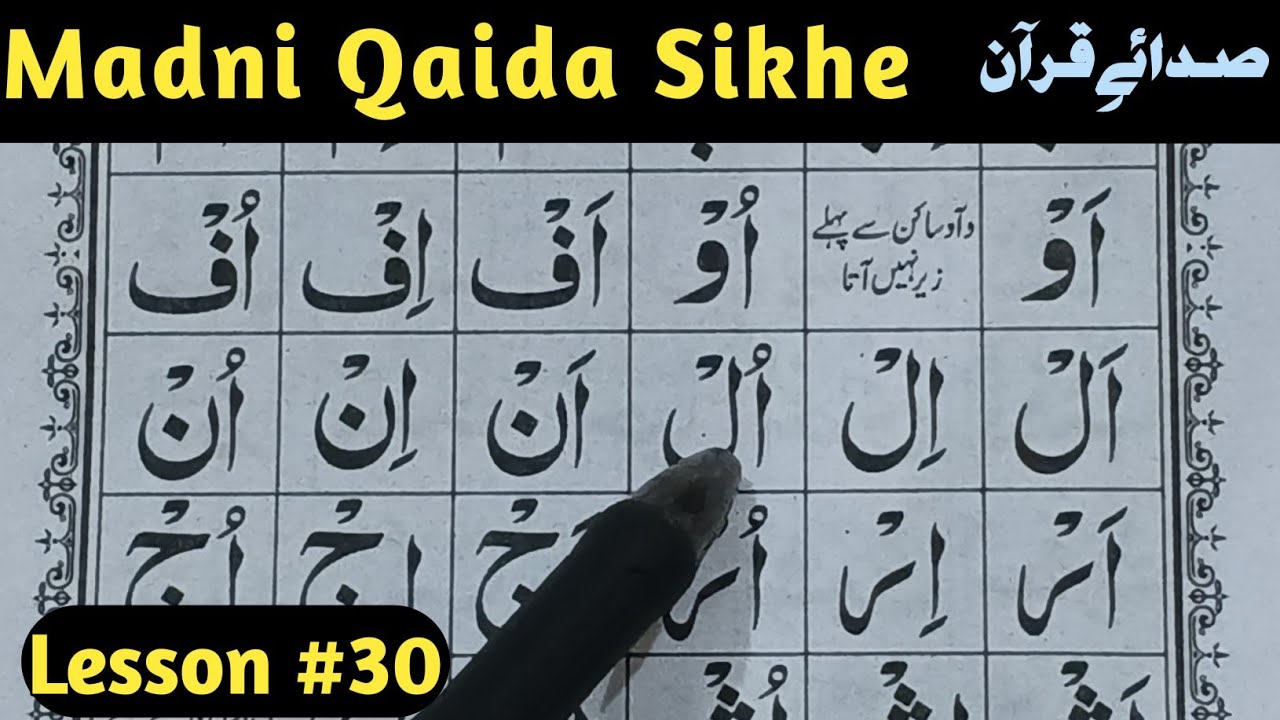 Madni Qaida Sikhe
صدائے قرآن
اَوْ وآو ساکن سے پہلے زیر نہیں آتا اُوْ اَفْ اِفْ اُفْ
اَلْ اِلْ اُلْ اَنْ اِنْ اُنْ
اَرْ اِرْ اُرْ اَجْ اِجْ اُجْ
Lesson #30